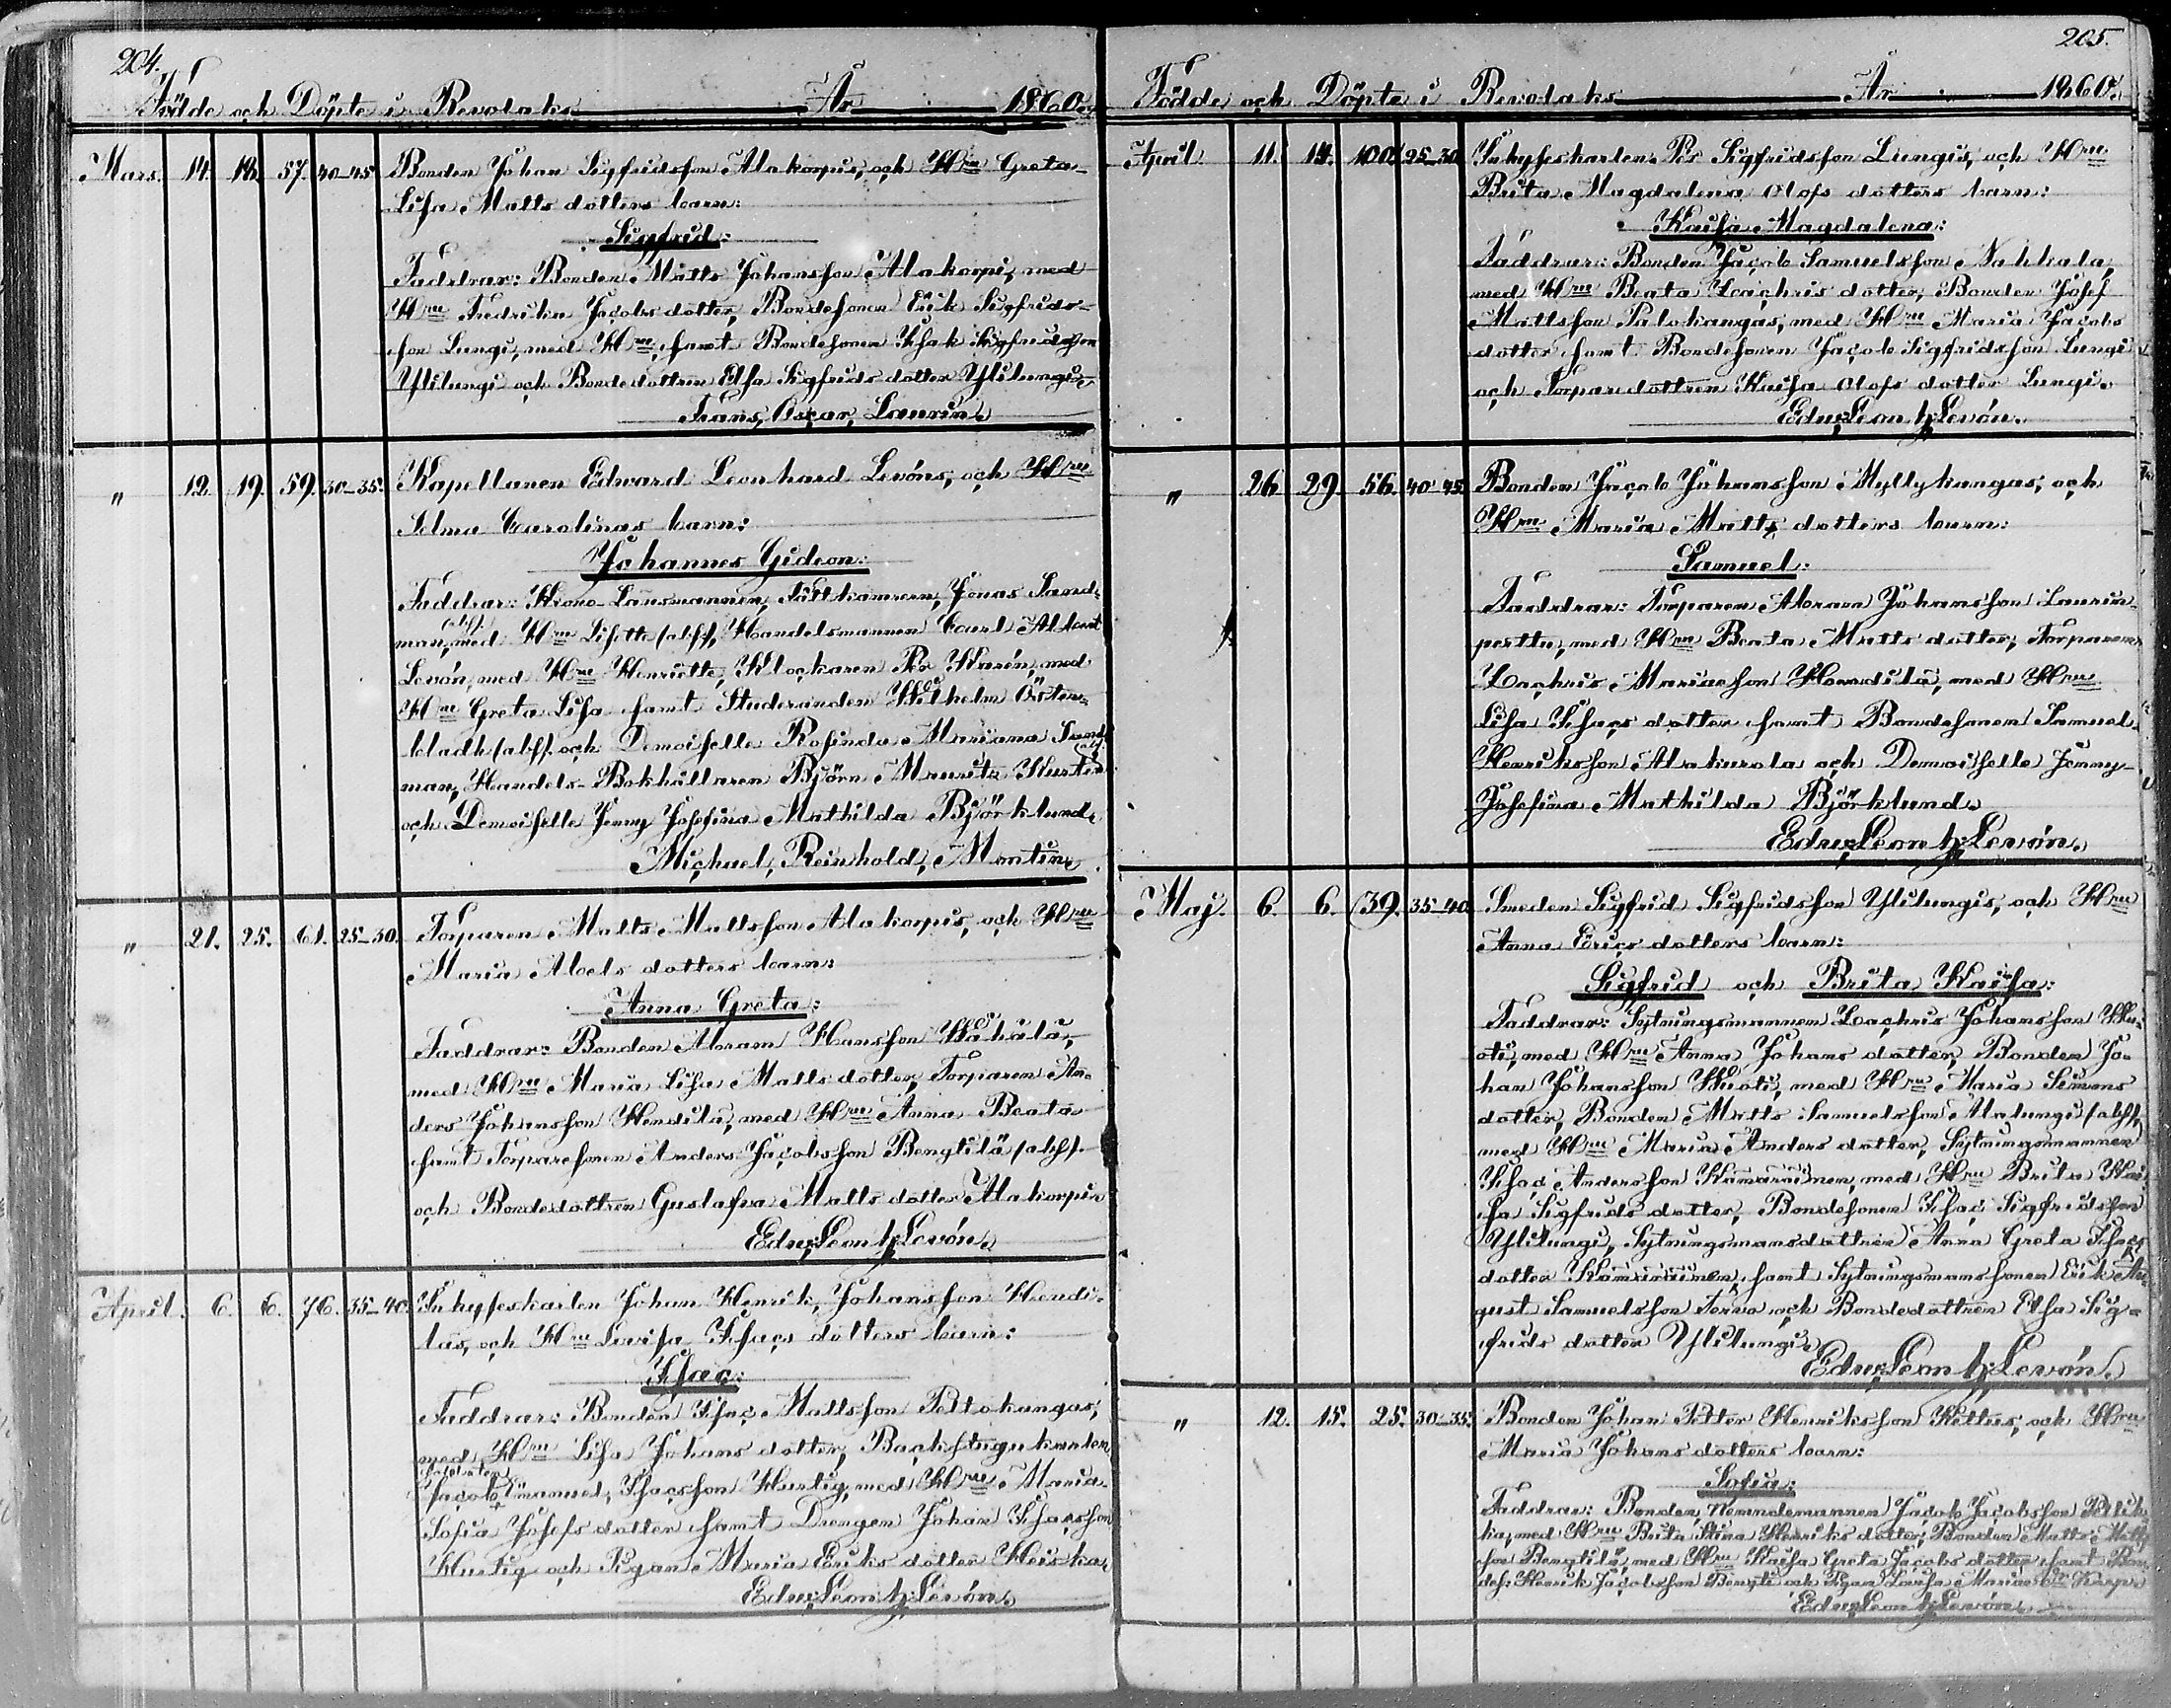 204.
Födde och Döpte i Revolaks År 1860.
Mars. 14. 18. 57. 40-45. Bonden Johan Sigfridsson Alakorpis, och Hru Greta
Lisa Matts dotters barn:
Sigfrid:
Faddrar: Bonden Matts Johansson Alakorpi, med
Hru Fredrika Jacobs dotter, Bondesonen Erik Sigfrids-
son Lungi, med Hru, samt Bondesonen Isak Sigfridsson
Ylilungi och Bondedottren Elsa Sigfrids dotter Ylilungi.
Frans, Oscar, Laurin.
" 12. 19. 59. 30-35. Kapellanen Edward Leonhard Levóns, och Hru
Selma Carolinas barn:
Johannes Gideon:
Faddrar: Krono-Länsmannen, Fältkamrern, Jonas Sand-
man, (abs) med Hru Lisette (abs), Handelsmannen Carl Albert
Levón, med Hru Henriette, Klockaren Per Karén, med
Hru Greta Lisa samt Studeranden Wilhelm Öster-
bladh (abs). och Demoiselle Rosinda Mariana Sand-
man, (abs). Handels-Bokhållaren Björn Mauritz Kurtén
och Demoiselle Jenny Josefina Mathilda Björklund.
Michael, Reinhold, Montin.
" 21. 25. 61. 25-30. Torparen Matts Mattsson Alakorpis, och Hru
Maria Abels dotters barn:
Anna Greta:
Faddrar: Bonden Abram Hansson Wähälä,
med Hru Maria Lisa Matts dotter, Torparen An-
ders Johansson Hendilä, med Hru Anna Beata
samt Torparesonen Anders Jacobsson Bengtilä (abs).
och Bondedottren Gustafva Matts dotter Alakorpi.
Edw: Leonh: Levón.
April. 6. 6. 76. 35-40. Inhyseskarlen Johan Henrik, Johansson Hendi-
läs, och Hru Lovisa Isacs dotters barn:
Isac:
Faddrar: Bonden Isac Mattsson Peltokangas,
med Hru Lisa Johans dotter, Backstugukarlen,
Jacob Emanuel, Isacsson Hurtig, med Hru Maria
Sofia Josefs dotter samt Drengen Johan Isacsson
Hurtig och Pigan Maria Eriks dotter Heiska.
Edw: Leonh: Levón.
205.
Födde och Döpte i Revolaks År 1860.
April 11. 14. 100. 25-30. Inhyseskarlen Per Sigfridsson Lungis, och Hru
Brita Magdalena Olofs dotters barn:
Kaisa Magdalena:
Faddrar: Bonden Jacob Samuelsson Nahkala,
med Hru Beata Zachris dotter, Bonden Josef
Mattsson Palokangas, med Hru Maria Jacobs
dotter samt Bondesonen Jacob Sigfridsson Lungi
och Torpardottren Kaisa Olofs dotter Lungi.
Edw: Leonh: Levón.
" 26. 29. 56. 40-45. Bonden Jacob Johansson Myllykangas, och
Hru Maria Matts dotters barn:
Samuel:
Faddrar: Torparen Abram Johansson Laurin-
perttu, med Hru Beata Matts dotter, Torparen
Zachris Mariæson Hendilä, med Hru
Lisa Isacs dotter samt Bondesonen Samuel
Henriksson Alakurola och Demoiselle Jenny
Josefina Mathilda Björklund.
Edw: Leonh: Levón.
Maj. 6. 6. (39. 35-40. Smeden Sigfrid Sigfridsson Ylilungis, och Hru
Anna Erics dotters barn:
Sigfrid och Brita Kaisa:
Faddrar: Sytningsmannen Zachris Johansson Wu-
oti, med Hru Anna Johans dotter, Bonden Jo-
han Johansson Wuoti, med Hru Maria Simons
dotter, Bonden Matts Samuelsson Alalungi (abs),
med Hru Maria Anders dotter, Sytningsmannen
Isac Andersson Kämäräinen, med Hru Brita Kai-
sa Sigfrids dotter, Bondesonen Isac Sigfridsson
Ylilungi, Sytningsmansdottren Anna Greta Isacs
dotter Kämäräinen, samt Sytningsmanssonen Erik Au-
gust Samuelsson Terva och Bondedottren Elsa Sig-
frids dotter Ylilungi.
Edw: Leonh: Levón.
" 12. 15. 25. 30-35. Bonden Johan Petter Henriksson Kettus, och Hru
Maria Johans dotters barn:
Sofia:
Faddrar: Bonden, Nemndemannen Jacob Jacobsson Pellik-
ka, med Hru Brita Stina Henriks dotter, Bonden Matts Matts-
son Bengtilä, med Hru Kaisa Greta Jacobs dotter samt Bon-
des: Henrik Jacobsson Bengti och Pigan Lovisa Mariæ
Edw: Leonh: Levón.